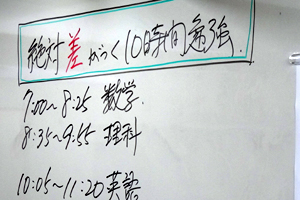 絶対差がつく10時間勉強
7:00~8:25 数学
8:35~9:55 理科
10:05~11:20 英語